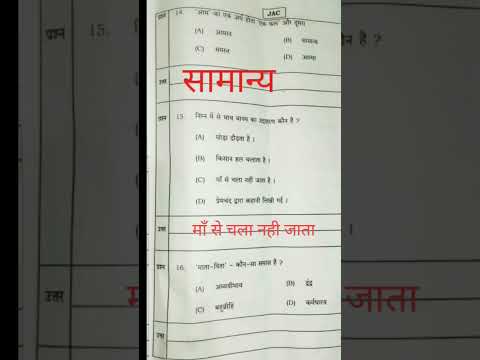 JAC
प्रश्न 14. 'आम' का एक अर्थ होता 'एक फल' और दूसरा
(A) आसान (B) सामान्य
(C) समान (D) आत्मा
उत्तर सामान्य
प्रश्न 15. निम्न में से भाव वाच्य का उदाहरण कौन है ?
(A) घोड़ा दौड़ता है ।
(B) किसान हल चलाता है ।
(C) माँ से चला नहीं जाता है ।
(D) प्रेमचंद द्वारा कहानी लिखी गई ।
उत्तर माँ से चला नही जाता
प्रश्न 16. 'माता-पिता' - कौन-सा समास है ?
(A) अव्ययीभाव (B) द्वंद्व
(C) बहुव्रीहि (D) कर्मधारय
उत्तर
प्रश्न 15.
न है ?
उत्तर
जाता